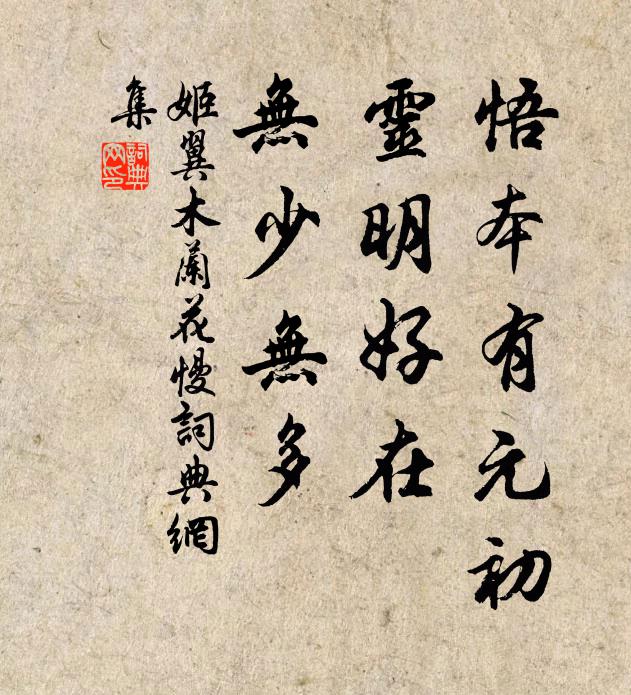 悟本有元初
靈明好在
無少無多
姬翼木蘭花慢詞典網
集
詞典
网印